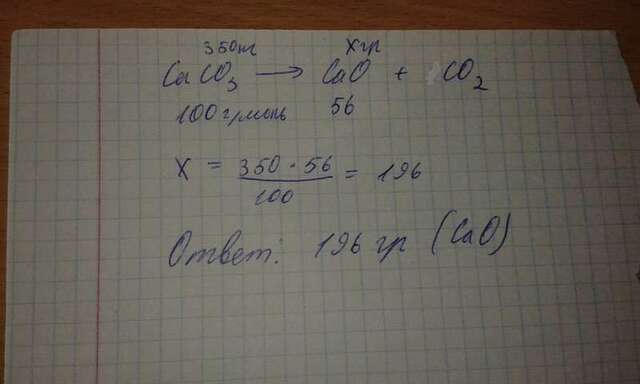 350 Xгр
CaCO₃ → CaO + CO₂
100 г/моль 56
X = 350 · 56 / 100 = 196
Ответ: 196 гр (CaO)